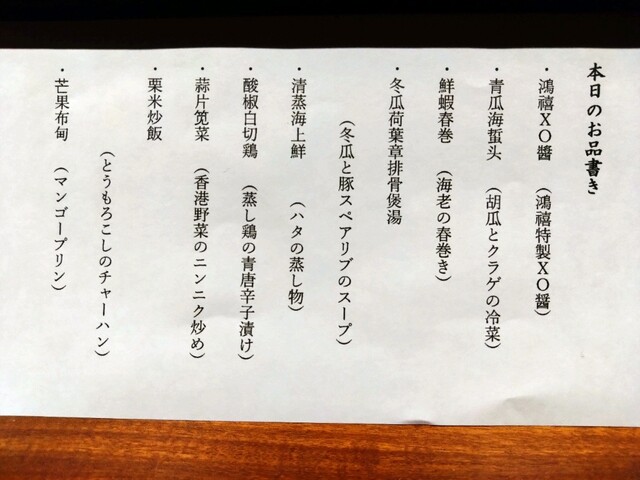 本日のお品書き
・鴻禧XO醬 (鴻禧特製XO醤)
・青瓜海蜇头 (胡瓜とクラゲの冷菜)
・鮮蝦春巻 (海老の春巻き)
・冬瓜荷葉章排骨煲湯
(冬瓜と豚スペアリブのスープ)
・清蒸海上鮮 (ハタの蒸し物)
・酸椒白切鶏 (蒸し鶏の青唐辛子漬け)
・蒜片筧菜 (香港野菜のニンニク炒め)
・栗米炒飯
(とうもろこしのチャーハン)
・芒果布甸 (マンゴープリン)